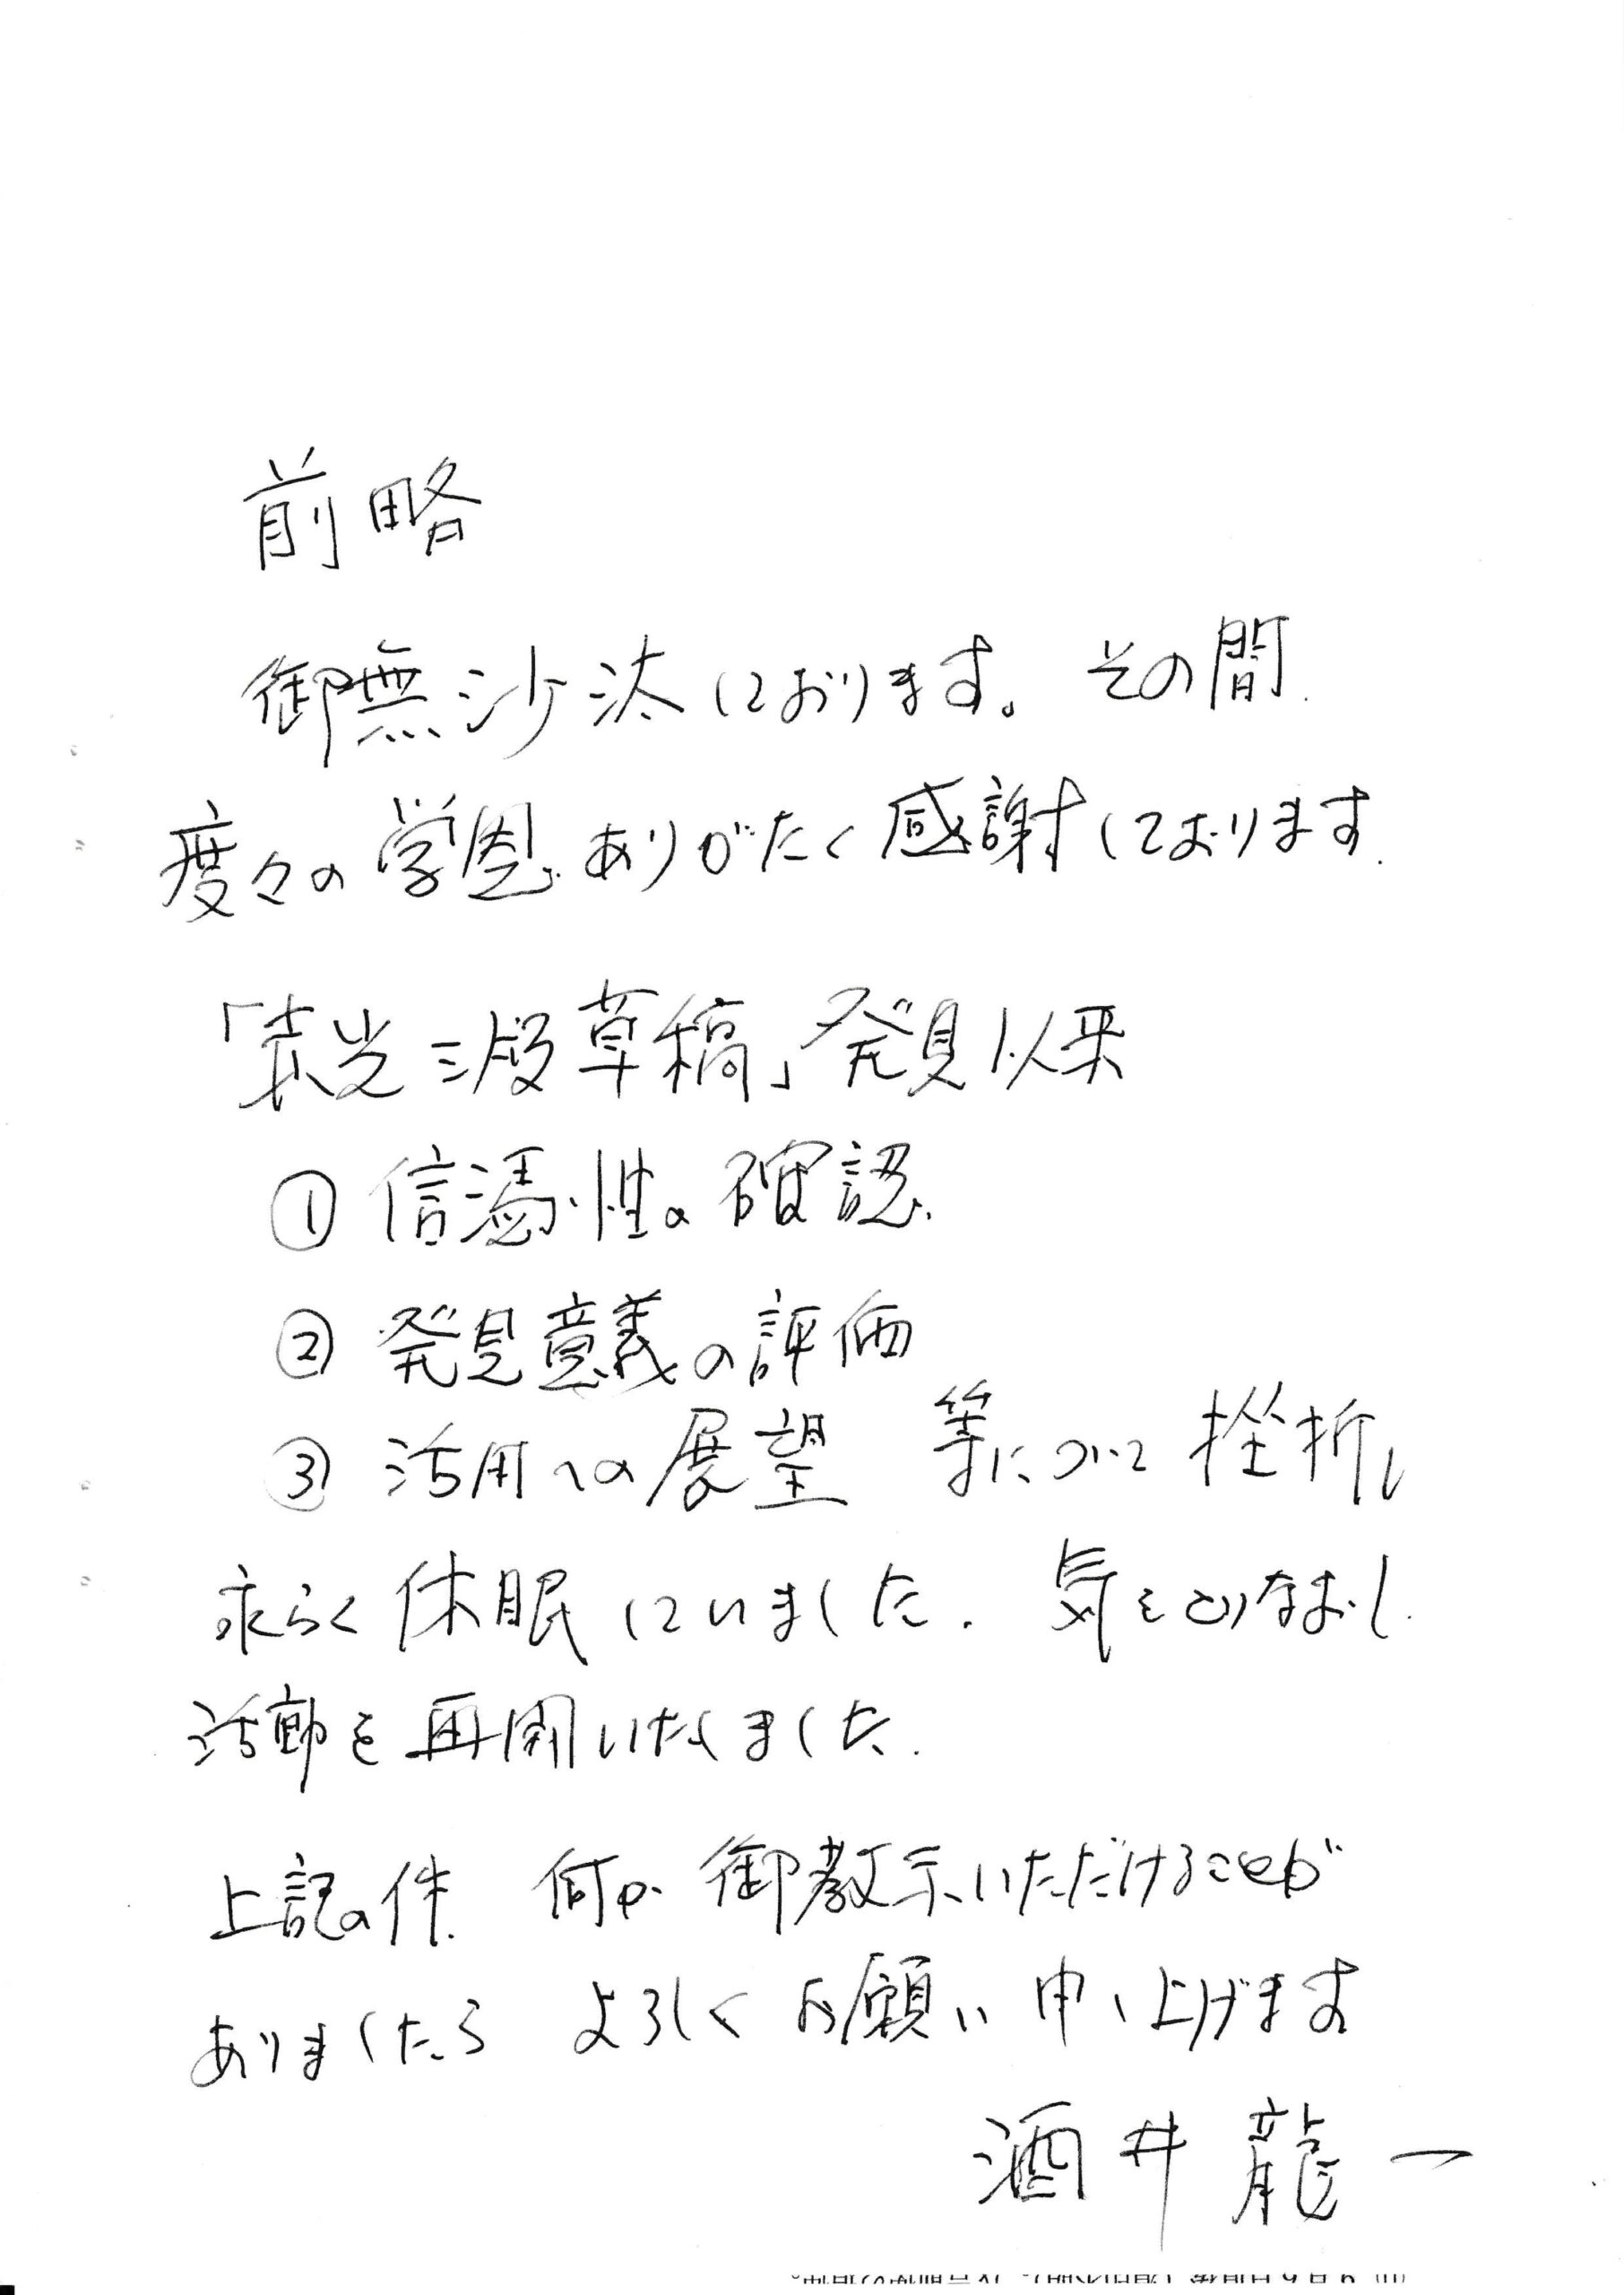 前略
御無沙汰しております。その間.
度々の学恩.ありがたく感謝しております.
「表光三段草稿」発見以来
① 信憑性の確認.
② 発見意義の評価
③ 活用への展望 等について挫折し
永らく休眠していました. 気をとりなおし.
活動を再開いたしました.
上記の件. 何か御教示いただけることが
ありましたら よろしくお願い申し上げます
酒井龍一